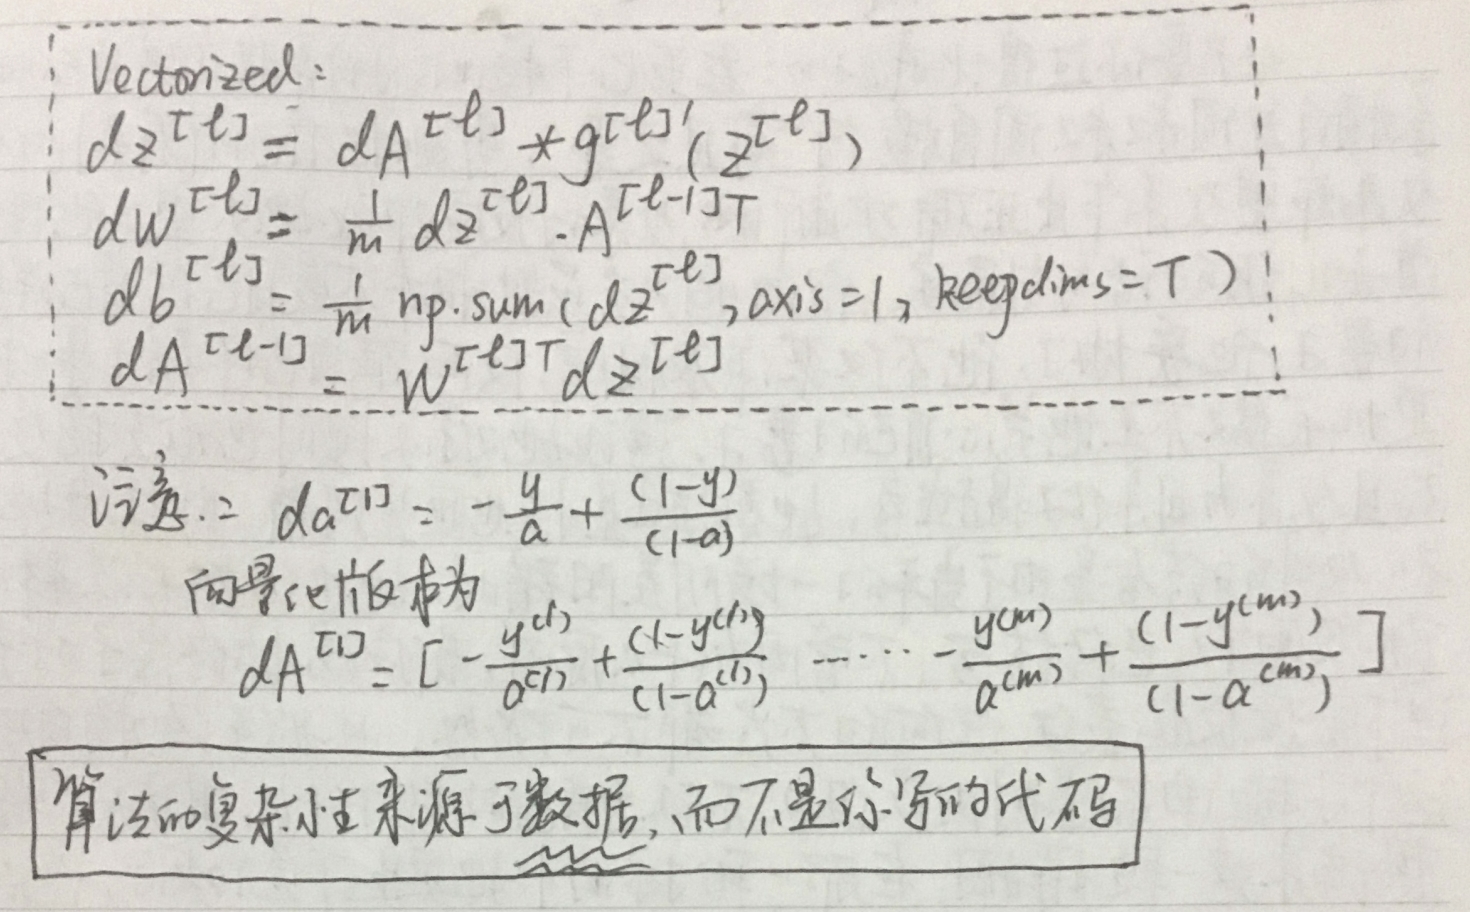 Vectorized:
dz^[l] = dA^[l] * g^[l]'(z^[l])
dw^[l] = 1/m dz^[l] · A^[l-1]T
db^[l] = 1/m np.sum(dz^[l], axis=1, keepdims=T)
dA^[l-1] = W^[l]T dz^[l]
注意: da^[1] = -y/a + (1-y)/(1-a)
向量化版本为
dA^[1] = [-y^(1)/a^(1) + (1-y^(1))/(1-a^(1)) ...... -y^(m)/a^(m) + (1-y^(m))/(1-a^(m))]
算法的复杂性来源于数据,而不是你写的代码